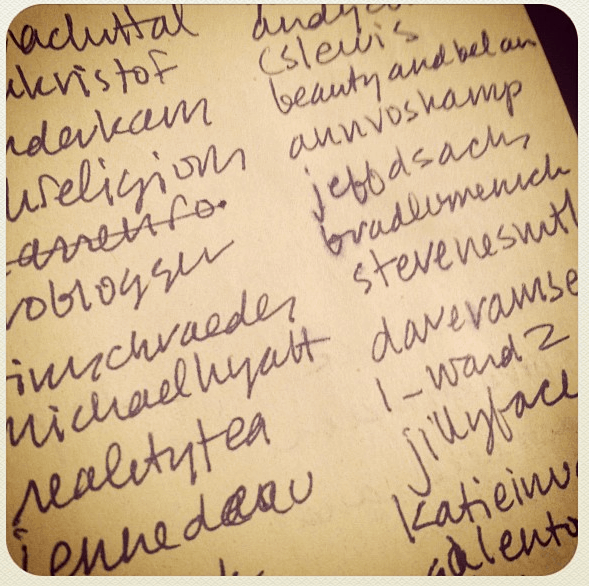 achuttal
kristof
nderkam
religion
roblogger
inschraeder
michaelhyatt
realitytea
jennedeau
andy
cslewis
beautyandbelan
annvoskamp
jeffdsachs
bradlomenick
stevenesmit
daveramse
l-ward2
jillyface
katieinu
valento